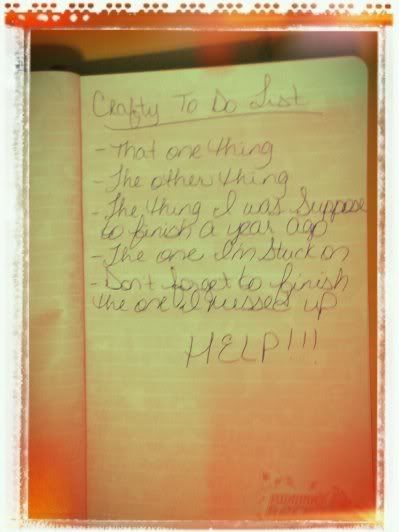 Crafty To Do List
- That one thing
- The other thing
- The thing I was Suppose
to finish a year ago
- The one I'm Stuck on
- Don't forget to finish
the one I messed up
HELP!!!